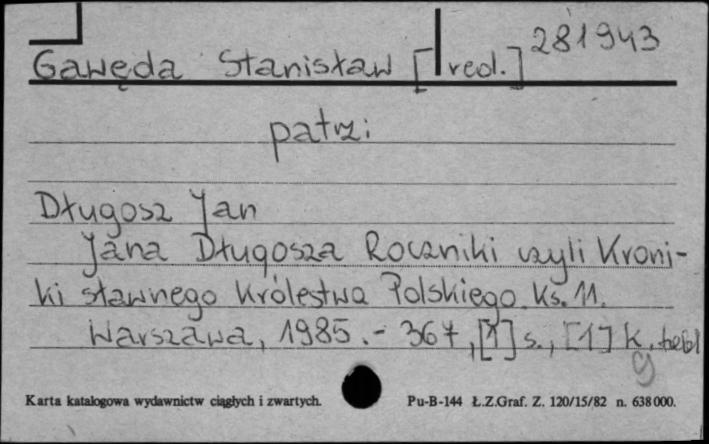 Gawęda Stanisław [red.] 281943
patrz:
Długosz Jan
Jana Długosza Roczniki czyli Kroni-
ki sławnego Królestwa Polskiego. Ks. 11.
Warszawa, 1985. - 367, [1] s., [1] k.
Karta katalogowa wydawnictw ciągłych i zwartych. Pu-B-144 Ł.Z.Graf. Z. 120/15/82 n. 638000.